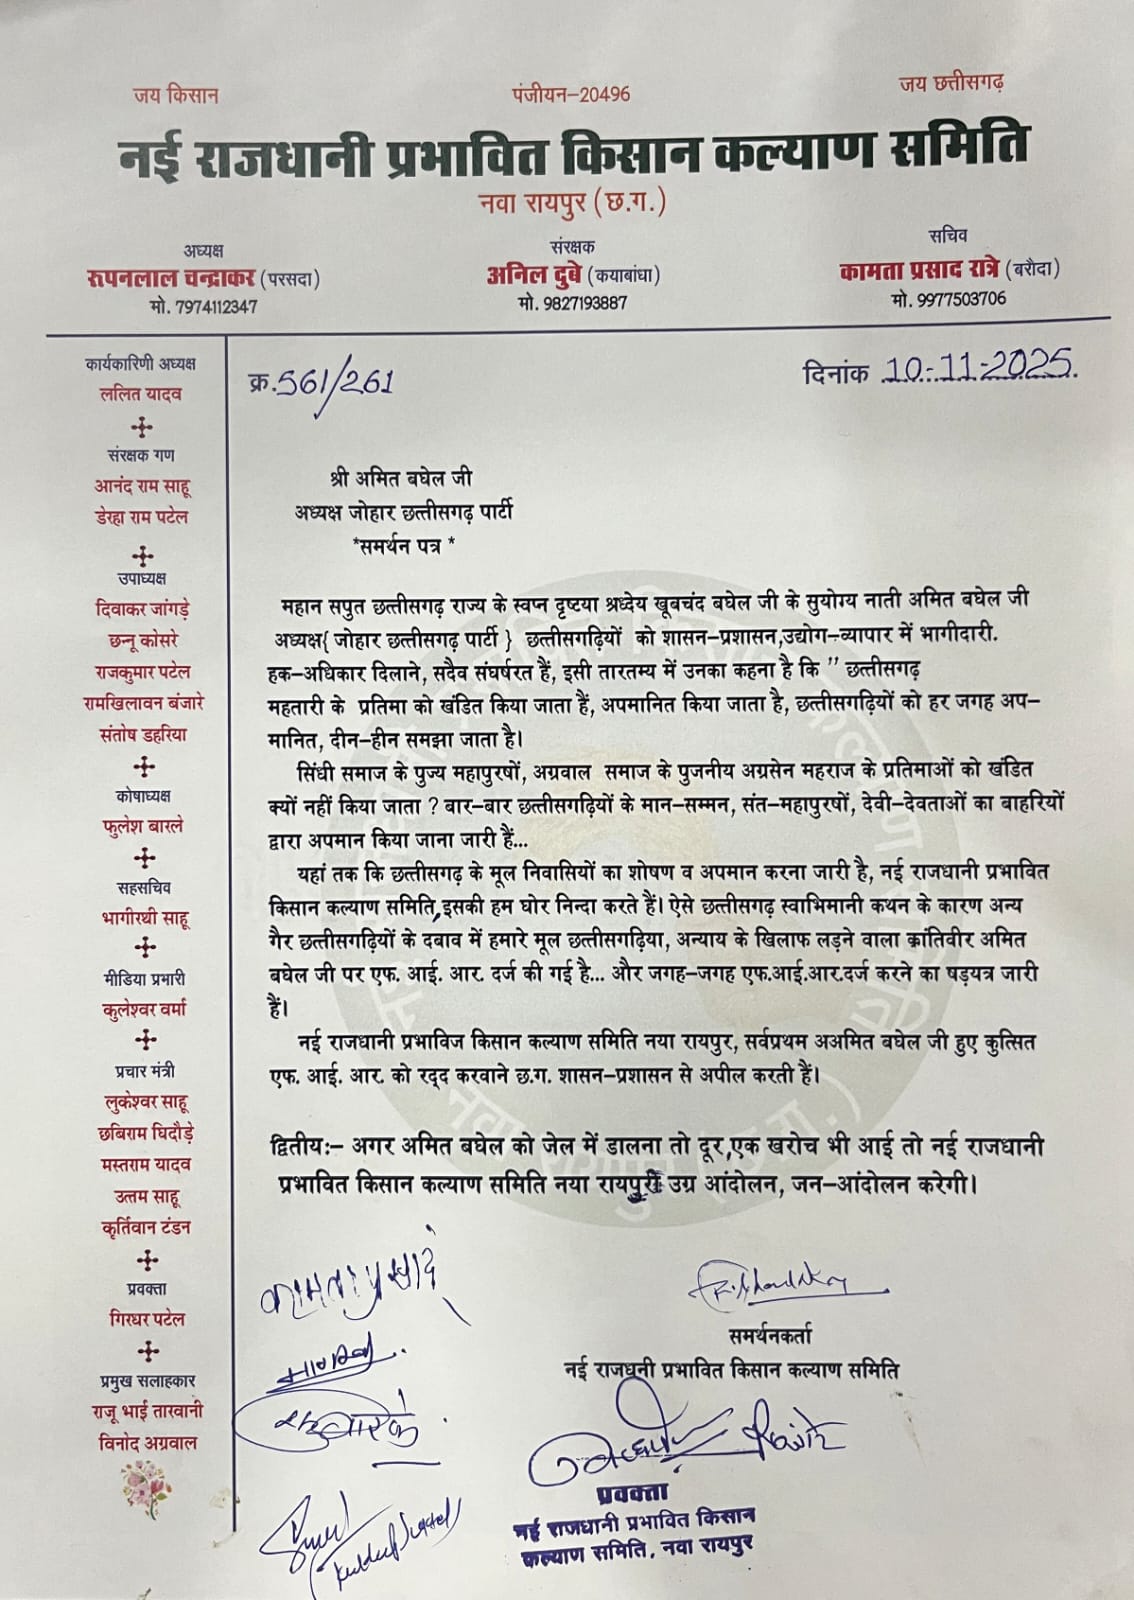 जय किसान
पंजीयन-20496
जय छत्तीसगढ़
नई राजधानी प्रभावित किसान कल्याण समिति
नवा रायपुर (छ.ग.)
अध्यक्ष
रुपनलाल चन्द्राकर (परसदा)
मो. 7974112347
संरक्षक
अनिल दुबे (कयाबांधा)
मो. 9827193887
सचिव
कामता प्रसाद रात्रे (बरौदा)
मो. 9977503706
कार्यकारिणी अध्यक्ष
ललित यादव
संरक्षक गण
आनंद राम साहू
डेरहा राम पटेल
उपाध्यक्ष
दिवाकर जांगड़े
छन्नू कोसरे
राजकुमार पटेल
रामखिलावन बंजारे
संतोष डहरिया
कोषाध्यक्ष
फुलेश बारले
सहसचिव
भागीरथी साहू
मीडिया प्रभारी
कुलेश्वर वर्मा
प्रचार मंत्री
लुकेश्वर साहू
छबिराम घिदौड़े
मस्तराम यादव
उत्तम साहू
कृर्तिवान टंडन
प्रवक्ता
गिरधर पटेल
प्रमुख सलाहकार
राजू भाई तारवानी
विनोद अग्रवाल
क्र.561/261
दिनांक 10-11-2025.
श्री अमित बघेल जी
अध्यक्ष जोहार छत्तीसगढ़ पार्टी
*समर्थन पत्र *
महान सपुत छत्तीसगढ़ राज्य के स्वप्न दृष्टया श्रध्देय खूबचंद बघेल जी के सुयोग्य नाती अमित बघेल जी
अध्यक्ष{ जोहार छत्तीसगढ़ पार्टी } छत्तीसगढ़ियों को शासन-प्रशासन,उद्योग-व्यापार में भागीदारी.
हक-अधिकार दिलाने, सदैव संघर्षरत हैं, इसी तारतम्य में उनका कहना है कि '' छत्तीसगढ़
महतारी के प्रतिमा को खंडित किया जाता हैं, अपमानित किया जाता है, छत्तीसगढ़ियों को हर जगह अप-
मानित, दीन-हीन समझा जाता है।
सिंधी समाज के पुज्य महापुरषों, अग्रवाल समाज के पुजनीय अग्रसेन महराज के प्रतिमाओं को खंडित
क्यों नहीं किया जाता ? बार-बार छत्तीसगढ़ियों के मान-सम्मन, संत-महापुरषों, देवी-देवताओं का बाहरियों
द्वारा अपमान किया जाना जारी हैं...
यहां तक कि छत्तीसगढ़ के मूल निवासियों का शोषण व अपमान करना जारी है, नई राजधानी प्रभावित
किसान कल्याण समिति,इसकी हम घोर निन्दा करते हैं। ऐसे छत्तीसगढ़ स्वाभिमानी कथन के कारण अन्य
गैर छत्तीसगढ़ियों के दबाव में हमारे मूल छत्तीसगढ़िया, अन्याय के खिलाफ लड़ने वाला क्रांतिवीर अमित
बघेल जी पर एफ. आई. आर. दर्ज की गई है... और जगह-जगह एफ.आई.आर.दर्ज करने का षड़यत्र जारी
हैं।
नई राजधानी प्रभाविज किसान कल्याण समिति नया रायपुर, सर्वप्रथम अअमित बघेल जी हुए कुत्सित
एफ. आई. आर. को रद्द करवाने छ.ग. शासन-प्रशासन से अपील करती हैं।
द्वितीयः- अगर अमित बघेल को जेल में डालना तो दूर,एक खरोच भी आई तो नई राजधानी
प्रभावित किसान कल्याण समिति नया रायपुर उग्र आंदोलन, जन-आंदोलन करेगी।
कामता प्रसाद
समर्थनकर्ता
नई राजधनी प्रभावित किसान कल्याण समिति
प्रवक्ता
नई राजधानी प्रभावित किसान
कल्याण समिति, नवा रायपुर